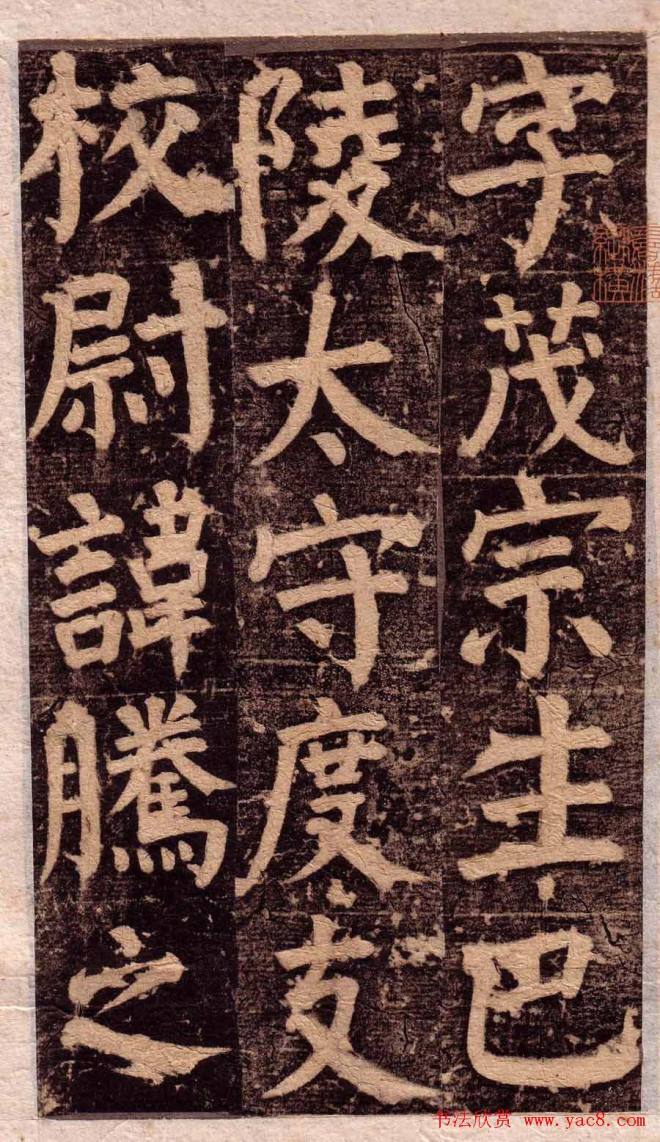 字茂宗生巴
陵太守度支
校尉諱騰之
书法欣赏 www.yac8.com